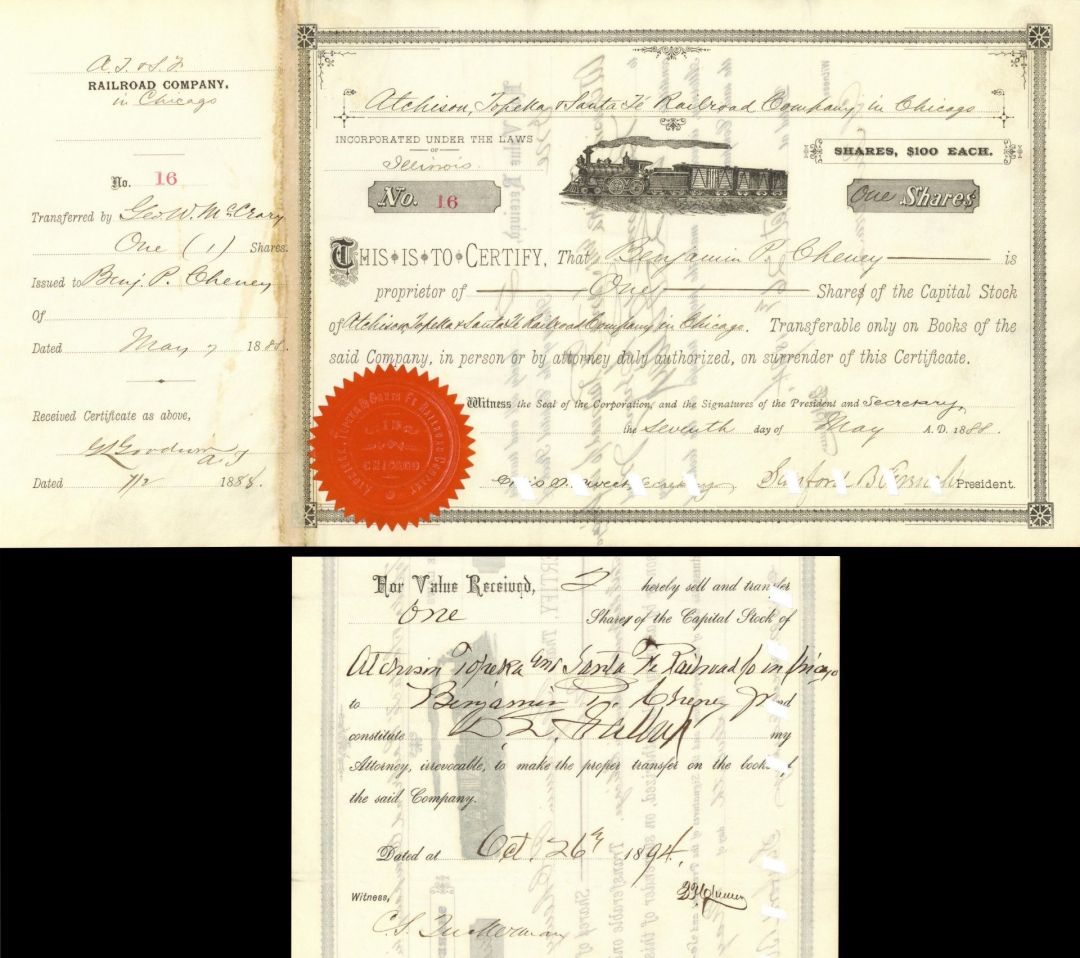 A. T. & S. F
RAILROAD COMPANY.
in Chicago
No. 16
Transferred by Geo W. McCrary
One (1) Shares.
Issued to Benj. P. Cheney
Of
Dated May 7 1888.
Received Certificate as above,
Dated 7/2 1888.
Atchison, Topeka & Santa Fe Railroad Company in Chicago
INCORPORATED UNDER THE LAWS
OF
Illinois.
SHARES, $100 EACH.
No. 16
One Shares
THIS IS TO CERTIFY, That Benjamin P. Cheney is
proprietor of One Shares of the Capital Stock
of Atchison, Topeka & Santa Fe Railroad Company in Chicago. Transferable only on Books of the
said Company, in person or by attorney duly authorized, on surrender of this Certificate.
Witness the Seal of the Corporation, and the Signatures of the President and Secretary,
the Seventh day of May A. D. 1888.
Secretary President.
ATCHISON, TOPEKA & SANTA FE RAILROAD COMPANY
IN
CHICAGO
For Value Received, I hereby sell and transfer
One Shares of the Capital Stock of
Atchison Topeka and Santa Fe Railroad Co in Chicago
to Benjamin P. Cheney Jr and
constitute my
Attorney, irrevocable, to make the proper transfer on the books of
the said Company.
Dated at Oct. 26th 1894.
Witness,
C. S. Tuckerman